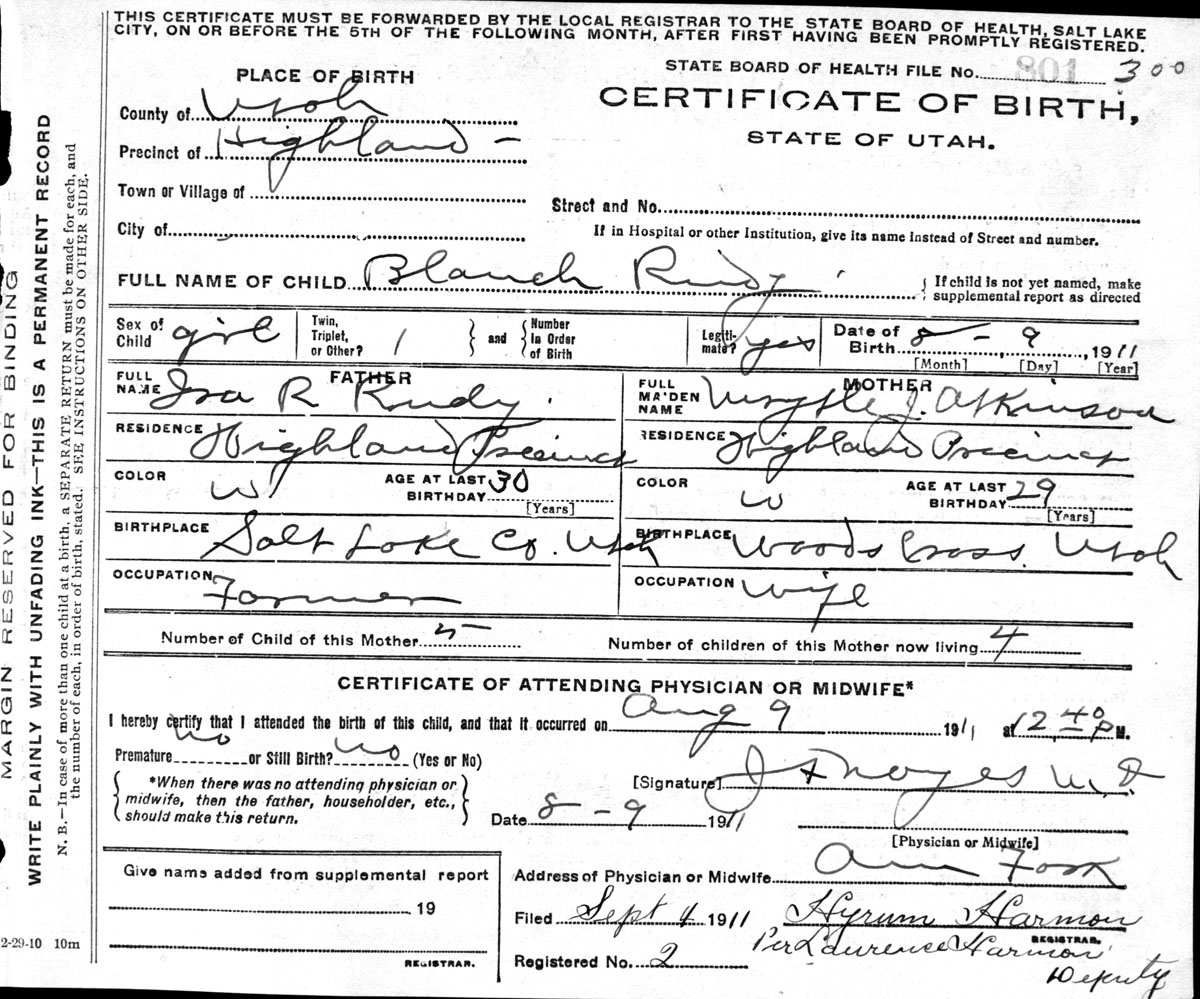 THIS CERTIFICATE MUST BE FORWARDED BY THE LOCAL REGISTRAR TO THE STATE BOARD OF HEALTH, SALT LAKE
CITY, ON OR BEFORE THE 5TH OF THE FOLLOWING MONTH, AFTER FIRST HAVING BEEN PROMPTLY REGISTERED.
STATE BOARD OF HEALTH FILE No. 801 300
CERTIFICATE OF BIRTH,
STATE OF UTAH.
PLACE OF BIRTH
County of Utah
Precinct of Highland
Town or Village of
City of
Street and No.
If in Hospital or other Institution, give its name instead of Street and number.
FULL NAME OF CHILD Blanch Rudy
If child is not yet named, make
supplemental report as directed
Sex of Child girl Twin, Triplet, or Other? 1 and Number In Order of Birth Legiti-mate? yes Date of Birth 8 - 9, 1911
[Month] [Day] [Year]
FATHER
FULL NAME Ira R Rudy
RESIDENCE Highland Precinct
COLOR W AGE AT LAST BIRTHDAY 30
[Years]
BIRTHPLACE Salt Lake Co. Utah
OCCUPATION Farmer
MOTHER
FULL MAIDEN NAME Myrtle J. Atkinson
RESIDENCE Highland Precinct
COLOR W AGE AT LAST BIRTHDAY 29
[Years]
BIRTHPLACE Woods Cross. Utah
OCCUPATION Wife
Number of Child of this Mother 5 Number of children of this Mother now living 4
CERTIFICATE OF ATTENDING PHYSICIAN OR MIDWIFE*
I hereby certify that I attended the birth of this child, and that it occurred on Aug 9 1911 at 12 40 P M.
Premature no or Still Birth? no (Yes or No)
*When there was no attending physician or
midwife, then the father, householder, etc.,
should make this return.
[Signature] Noyes M.D.
Date 8 - 9 1911
[Physician or Midwife]
Address of Physician or Midwife Am Fork
Give name added from supplemental report
19
REGISTRAR.
Filed Sept 4 1911 Hyrum Harmon
REGISTRAR.
Per Laurence Harmon
Registered No. 2
Deputy
MARGIN RESERVED FOR BINDING
WRITE PLAINLY WITH UNFADING INK—THIS IS A PERMANENT RECORD
N. B.—In case of more than one child at a birth, a SEPARATE RETURN must be made for each, and
the number of each, in order of birth, stated. SEE INSTRUCTIONS ON OTHER SIDE.
2-29-10 10m